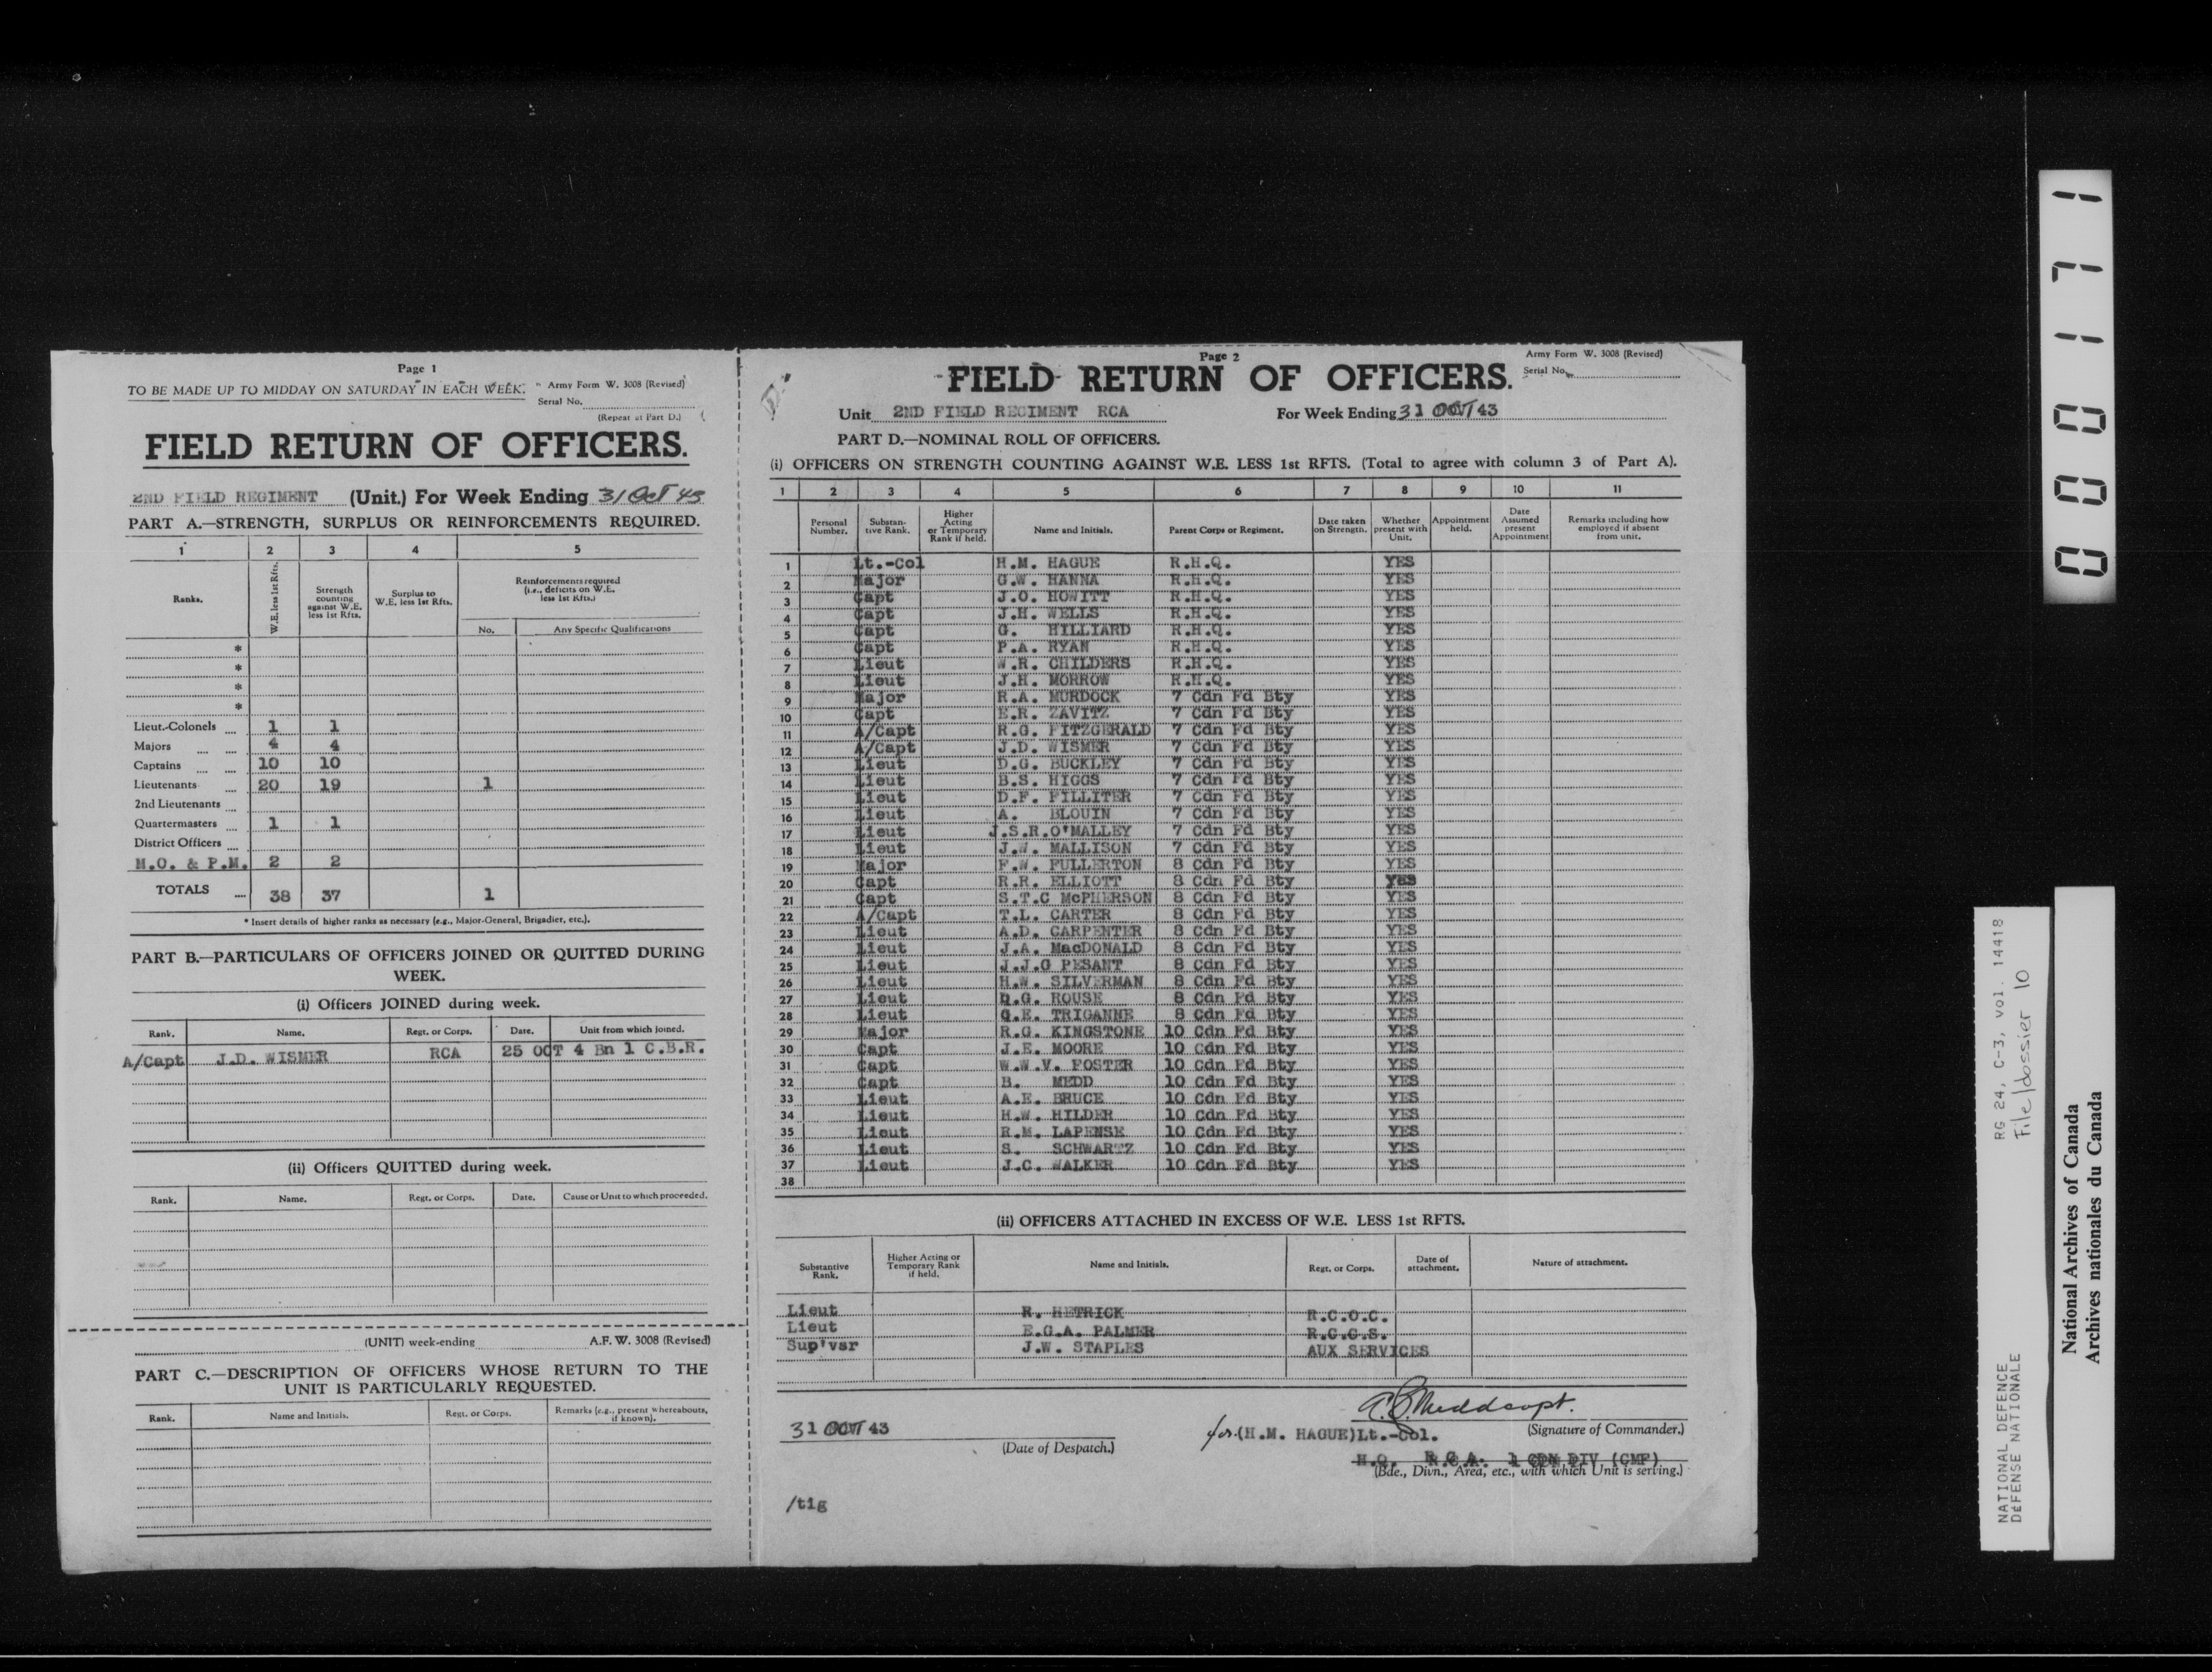 Page 1
TO BE MADE UP TO MIDDAY ON SATURDAY IN EACH WEEK.
Army Form W. 3008 (Revised)
Serial No.
(Repeat at Part D.)
FIELD RETURN OF OFFICERS.
2ND FIELD REGIMENT (Unit.) For Week Ending 31 Oct 43
PART A.—STRENGTH, SURPLUS OR REINFORCEMENTS REQUIRED.
1 2 3 4 5
Ranks. W.E. less 1st Rfts. Strength counting against W.E. less 1st Rfts. Surplus to W.E. less 1st Rfts. Reinforcements required (i.e., deficits on W.E. less 1st Rfts.)
No. Any Specific Qualifications
*
*
*
*
Lieut.-Colonels 1 1
Majors 4 4
Captains 10 10
Lieutenants 20 19 1
2nd Lieutenants
Quartermasters 1 1
District Officers
M.O. & P.M. 2 2
TOTALS 38 37 1
* Insert details of higher ranks as necessary (e.g., Major-General, Brigadier, etc.).
PART B.—PARTICULARS OF OFFICERS JOINED OR QUITTED DURING
WEEK.
(i) Officers JOINED during week.
Rank. Name. Regt. or Corps. Date. Unit from which joined.
A/Capt J.D. WISMER RCA 25 OCT 4 Bn 1 C.B.R.
(ii) Officers QUITTED during week.
Rank. Name. Regt. or Corps. Date. Cause or Unit to which proceeded.
(UNIT) week-ending A.F. W. 3008 (Revised)
PART C.—DESCRIPTION OF OFFICERS WHOSE RETURN TO THE
UNIT IS PARTICULARLY REQUESTED.
Rank. Name and Initials. Regt. or Corps. Remarks (e.g., present whereabouts, if known).
Page 2
Army Form W. 3008 (Revised)
Serial No.
FIELD RETURN OF OFFICERS.
Unit 2ND FIELD REGIMENT RCA For Week Ending 31 OCT 43
PART D.—NOMINAL ROLL OF OFFICERS.
(i) OFFICERS ON STRENGTH COUNTING AGAINST W.E. LESS 1st RFTS. (Total to agree with column 3 of Part A).
1 2 3 4 5 6 7 8 9 10 11
Personal Number. Substantive Rank. Higher Acting or Temporary Rank if held. Name and Initials. Parent Corps or Regiment. Date taken on Strength. Whether present with Unit. Appointment held. Date Assumed present Appointment Remarks including how employed if absent from unit.
1 Lt.-Col H.M. HAGUE R.H.Q. YES
2 Major G.W. HANNA R.H.Q. YES
3 Capt J.O. HOWITT R.H.Q. YES
4 Capt J.H. WELLS R.H.Q. YES
5 Capt G. HILLIARD R.H.Q. YES
6 Capt P.A. RYAN R.H.Q. YES
7 Lieut W.R. CHILDERS R.H.Q. YES
8 Lieut J.H. MORROW R.H.Q. YES
9 Major R.A. MURDOCK 7 Cdn Fd Bty YES
10 Capt E.R. ZAVITZ 7 Cdn Fd Bty YES
11 A/Capt R.G. FITZGERALD 7 Cdn Fd Bty YES
12 A/Capt J.D. WISMER 7 Cdn Fd Bty YES
13 Lieut D.G. BUCKLEY 7 Cdn Fd Bty YES
14 Lieut B.S. HIGGS 7 Cdn Fd Bty YES
15 Lieut D.F. FILLITER 7 Cdn Fd Bty YES
16 Lieut A. BLOUIN 7 Cdn Fd Bty YES
17 Lieut J.S.R.O'MALLEY 7 Cdn Fd Bty YES
18 Lieut J.W. MALLISON 7 Cdn Fd Bty YES
19 Major F.W. FULLERTON 8 Cdn Fd Bty YES
20 Capt R.R. ELLIOTT 8 Cdn Fd Bty Yes
21 Capt S.T.C McPHERSON 8 Cdn Fd Bty YES
22 A/Capt T.L. CARTER 8 Cdn Fd Bty YES
23 Lieut A.D. CARPENTER 8 Cdn Fd Bty YES
24 Lieut J.A. MacDONALD 8 Cdn Fd Bty YES
25 Lieut J.J.G PESANT 8 Cdn Fd Bty YES
26 Lieut H.W. SILVERMAN 8 Cdn Fd Bty YES
27 Lieut D.G. ROUSE 8 Cdn Fd Bty YES
28 Lieut G.E. TRIGANNE 8 Cdn Fd Bty YES
29 Major R.G. KINGSTONE 10 Cdn Fd Bty YES
30 Capt J.E. MOORE 10 Cdn Fd Bty YES
31 Capt W.W.V. FOSTER 10 Cdn Fd Bty YES
32 Capt B. MEDD 10 Cdn Fd Bty YES
33 Lieut A.E. BRUCE 10 Cdn Fd Bty YES
34 Lieut H.W. HILDER 10 Cdn Fd Bty YES
35 Lieut R.M. LAPENSE 10 Cdn Fd Bty YES
36 Lieut S. SCHWARTZ 10 Cdn Fd Bty YES
37 Lieut J.C. WALKER 10 Cdn Fd Bty YES
38
(ii) OFFICERS ATTACHED IN EXCESS OF W.E. LESS 1st RFTS.
Substantive Rank. Higher Acting or Temporary Rank if held. Name and Initials. Regt. or Corps. Date of attachment. Nature of attachment.
Lieut R. HETRICK R.C.O.C.
Lieut E.G.A. PALMER R.C.C.S.
Sup'vsr J.W. STAPLES AUX SERVICES
31 OCT 43
(Date of Despatch.)
for (H.M. HAGUE)Lt.-Col.
(Signature of Commander.)
H.Q. R.C.A. 1 CDN DIV (CMF)
(Bde., Divn., Area, etc., with which Unit is serving.)
/tig
000171
RG 24, C-3, vol. 14418
File/dossier 10
NATIONAL DEFENCE
DÉFENSE NATIONALE
National Archives of Canada
Archives nationales du Canada